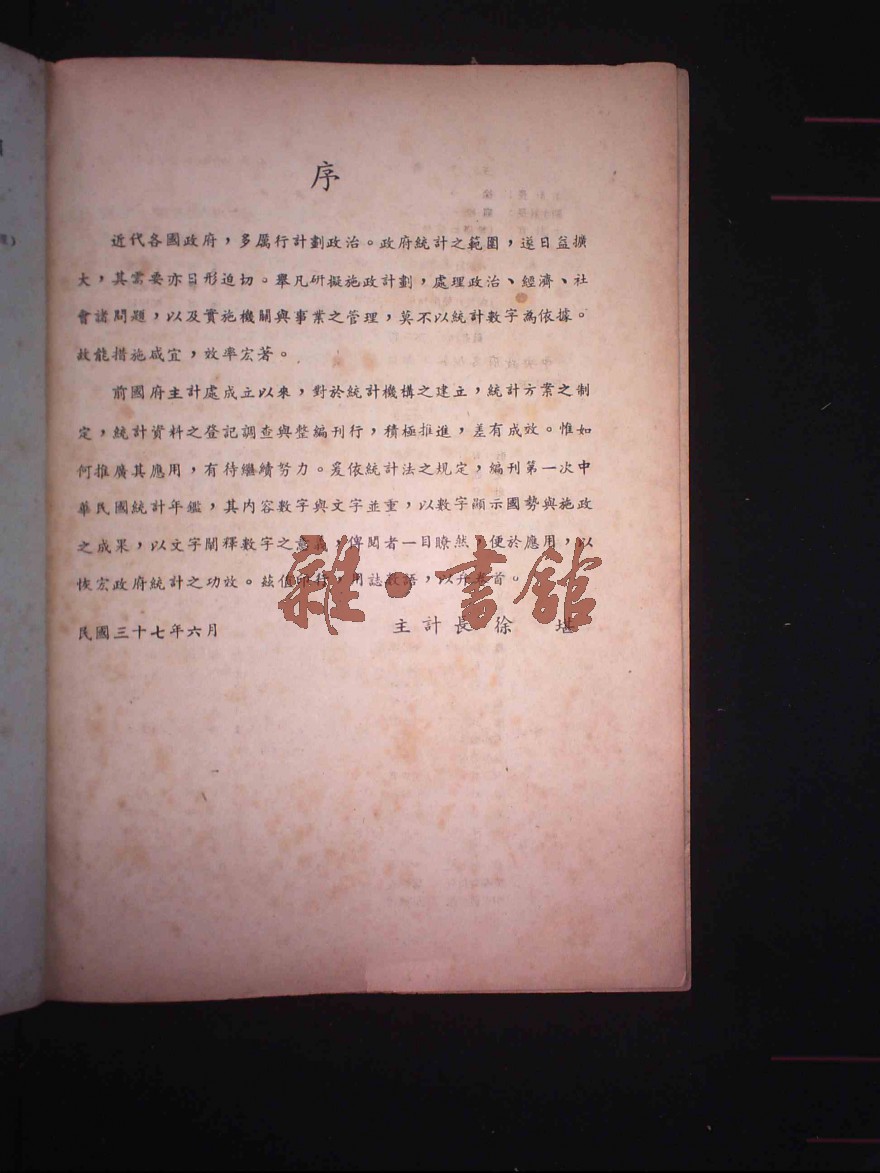 序
近代各國政府，多厲行計劃政治。政府統計之範圍，遂日益擴
大，其需要亦日形迫切。舉凡研擬施政計劃，處理政治、經濟、社
會諸問題，以及實施機關與事業之管理，莫不以統計數字為依據。
故能措施咸宜，效率宏著。
前國府主計處成立以來，對於統計機構之建立，統計方案之制
定，統計資料之登記調查與整編刊行，積極推進，差有成效。惟如
何推廣其應用，有待繼續努力。爰依統計法之規定，編刊第一次中
華民國統計年鑑，其內容數字與文字並重，以數字顯示國勢與施政
之成果，以文字闡釋數字之意義，俾閱者一目瞭然，便於應用，以
恢宏政府統計之功效。茲值印行，用誌數語，以弁卷首。
民國三十七年六月 主計長 徐 堪
雜·書館